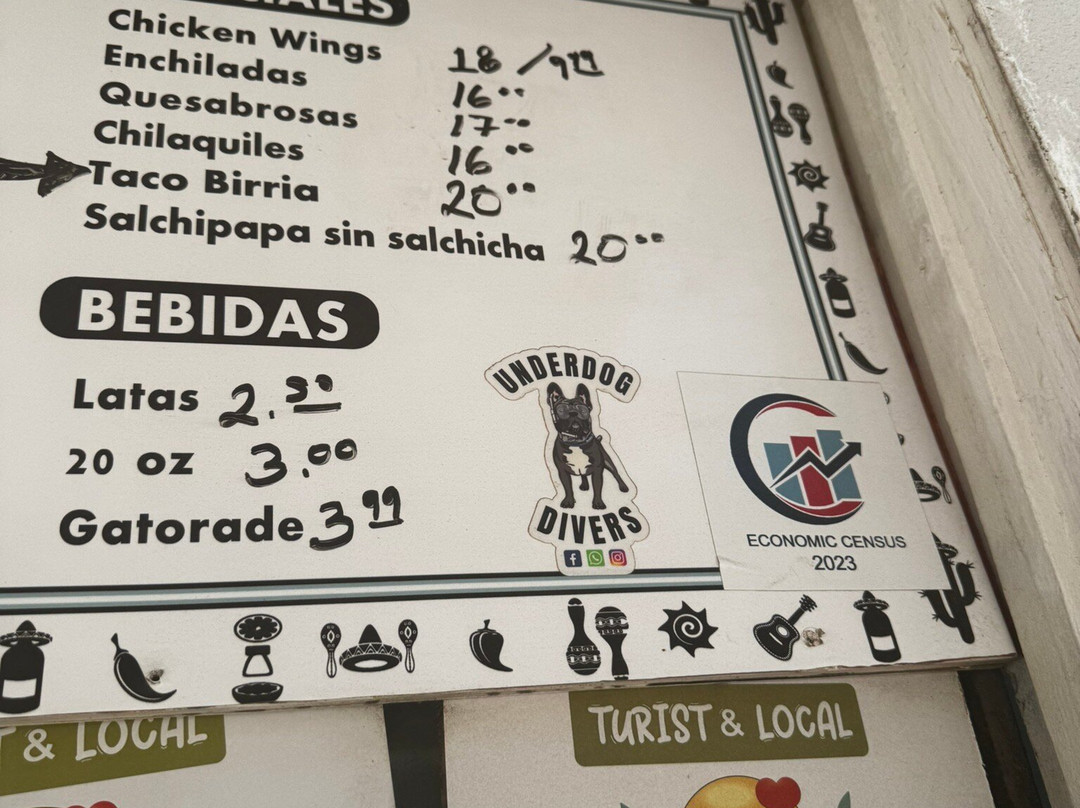 Chicken Wings 18 / 9⁹⁹
Enchiladas 16⁰⁰
Quesabrosas 17⁰⁰
Chilaquiles 16⁰⁰
Taco Birria 20⁰⁰
Salchipapa sin salchicha 20⁰⁰
BEBIDAS
Latas 2.⁵⁰
20 oz 3.⁰⁰
Gatorade 3⁹⁹
UNDERDOG
DIVERS
ECONOMIC CENSUS
2023
& LOCAL
TURIST & LOCAL